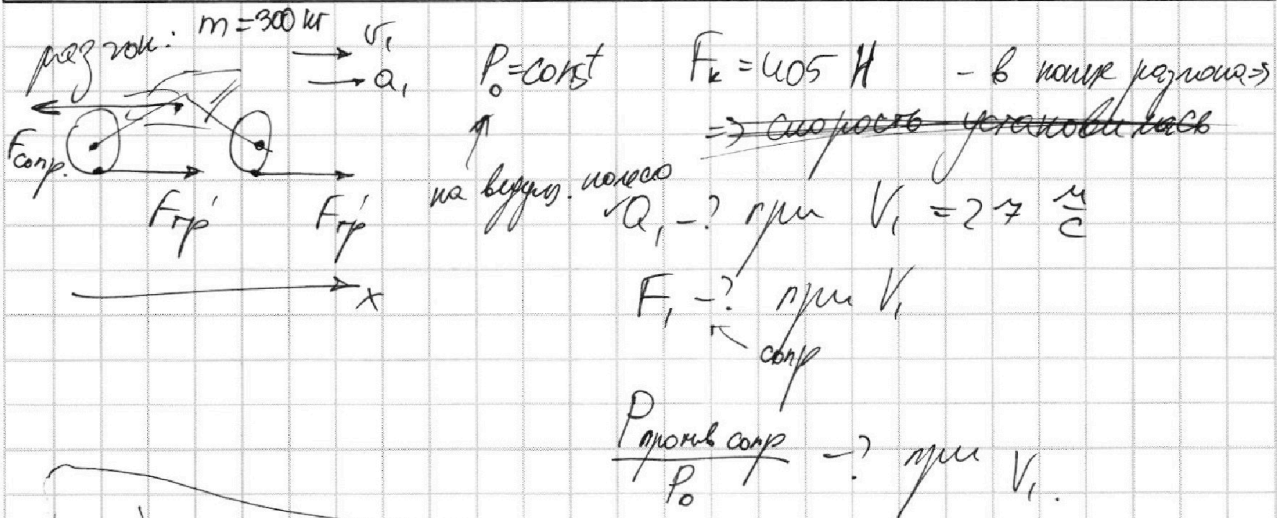 разгон: m = 300 кг
V₁
a₁
Fсопр.
Fтр' Fтр'
x
P₀ = const
на ведущ. колесо
Fк = 405 Н - в конце разгона =>
=> скорость установилась
a₁ - ? при V₁ = 27 м/с
F₁ - ? при V₁
сопр
Pпротив сопр / P₀ - ? при V₁.